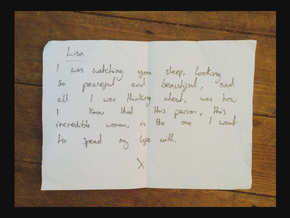 Lisa
I was watching you sleep, looking
so peaceful and beautiful, and
all I was thinking about, was how
I know that this person, this
incredible woman, is the one I want
to spend my life with.
X